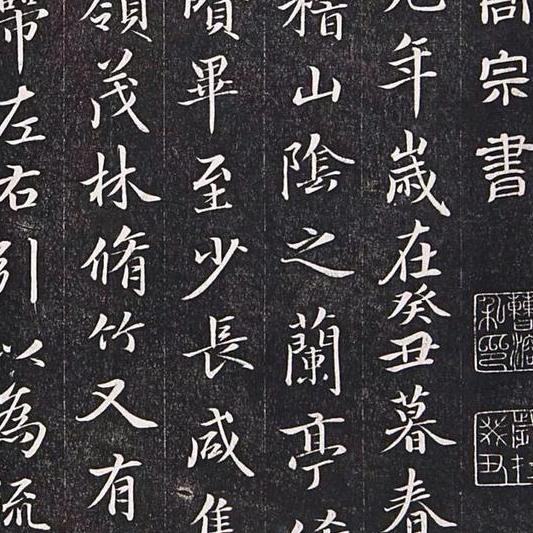 高宗書
元年歲在癸丑暮春
稽山陰之蘭亭脩
賢畢至少長咸集
領茂林脩竹又有
帶左右引以為流